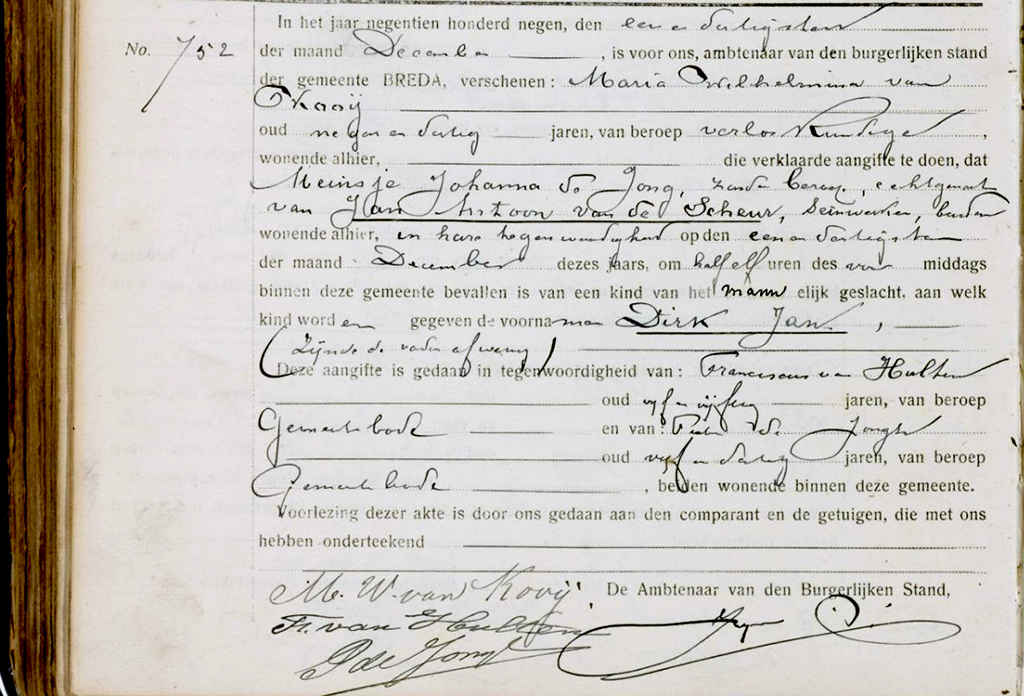 In het jaar negentien honderd negen, den een en dertigsten
No. 752
der maand December, is voor ons, ambtenaar van den burgerlijken stand
der gemeente BREDA, verschenen: Maria Wilhelmina van
Kooij
oud negen en dertig jaren, van beroep verloskundige,
wonende alhier, die verklaarde aangifte te doen, dat
Meinsje Johanna de Jong, zonder beroep, echtgenoot
van Jan Antoon van de Scheur, Seinwerker, beiden
wonende alhier, in hare tegenwoordigheid op den een en dertigsten
der maand December dezes jaars, om half elf uren des voor middags
binnen deze gemeente bevallen is van een kind van het mann elijk geslacht, aan welk
kind word en gegeven de voorna men Dirk Jan,
(Zijnde de vader afwezig)
Deze aangifte is gedaan in tegenwoordigheid van: Franciscus van Hulten
oud vijf en vijftig jaren, van beroep
Gemeentebode en van: Pieter de Jongh
oud vijf en dertig jaren, van beroep
Gemeentebode, beiden wonende binnen deze gemeente.
Voorlezing dezer akte is door ons gedaan aan den comparant en de getuigen, die met ons
hebben onderteekend
M. W. van Kooij De Ambtenaar van den Burgerlijken Stand,
Fr. van Hulten
P de Jongh